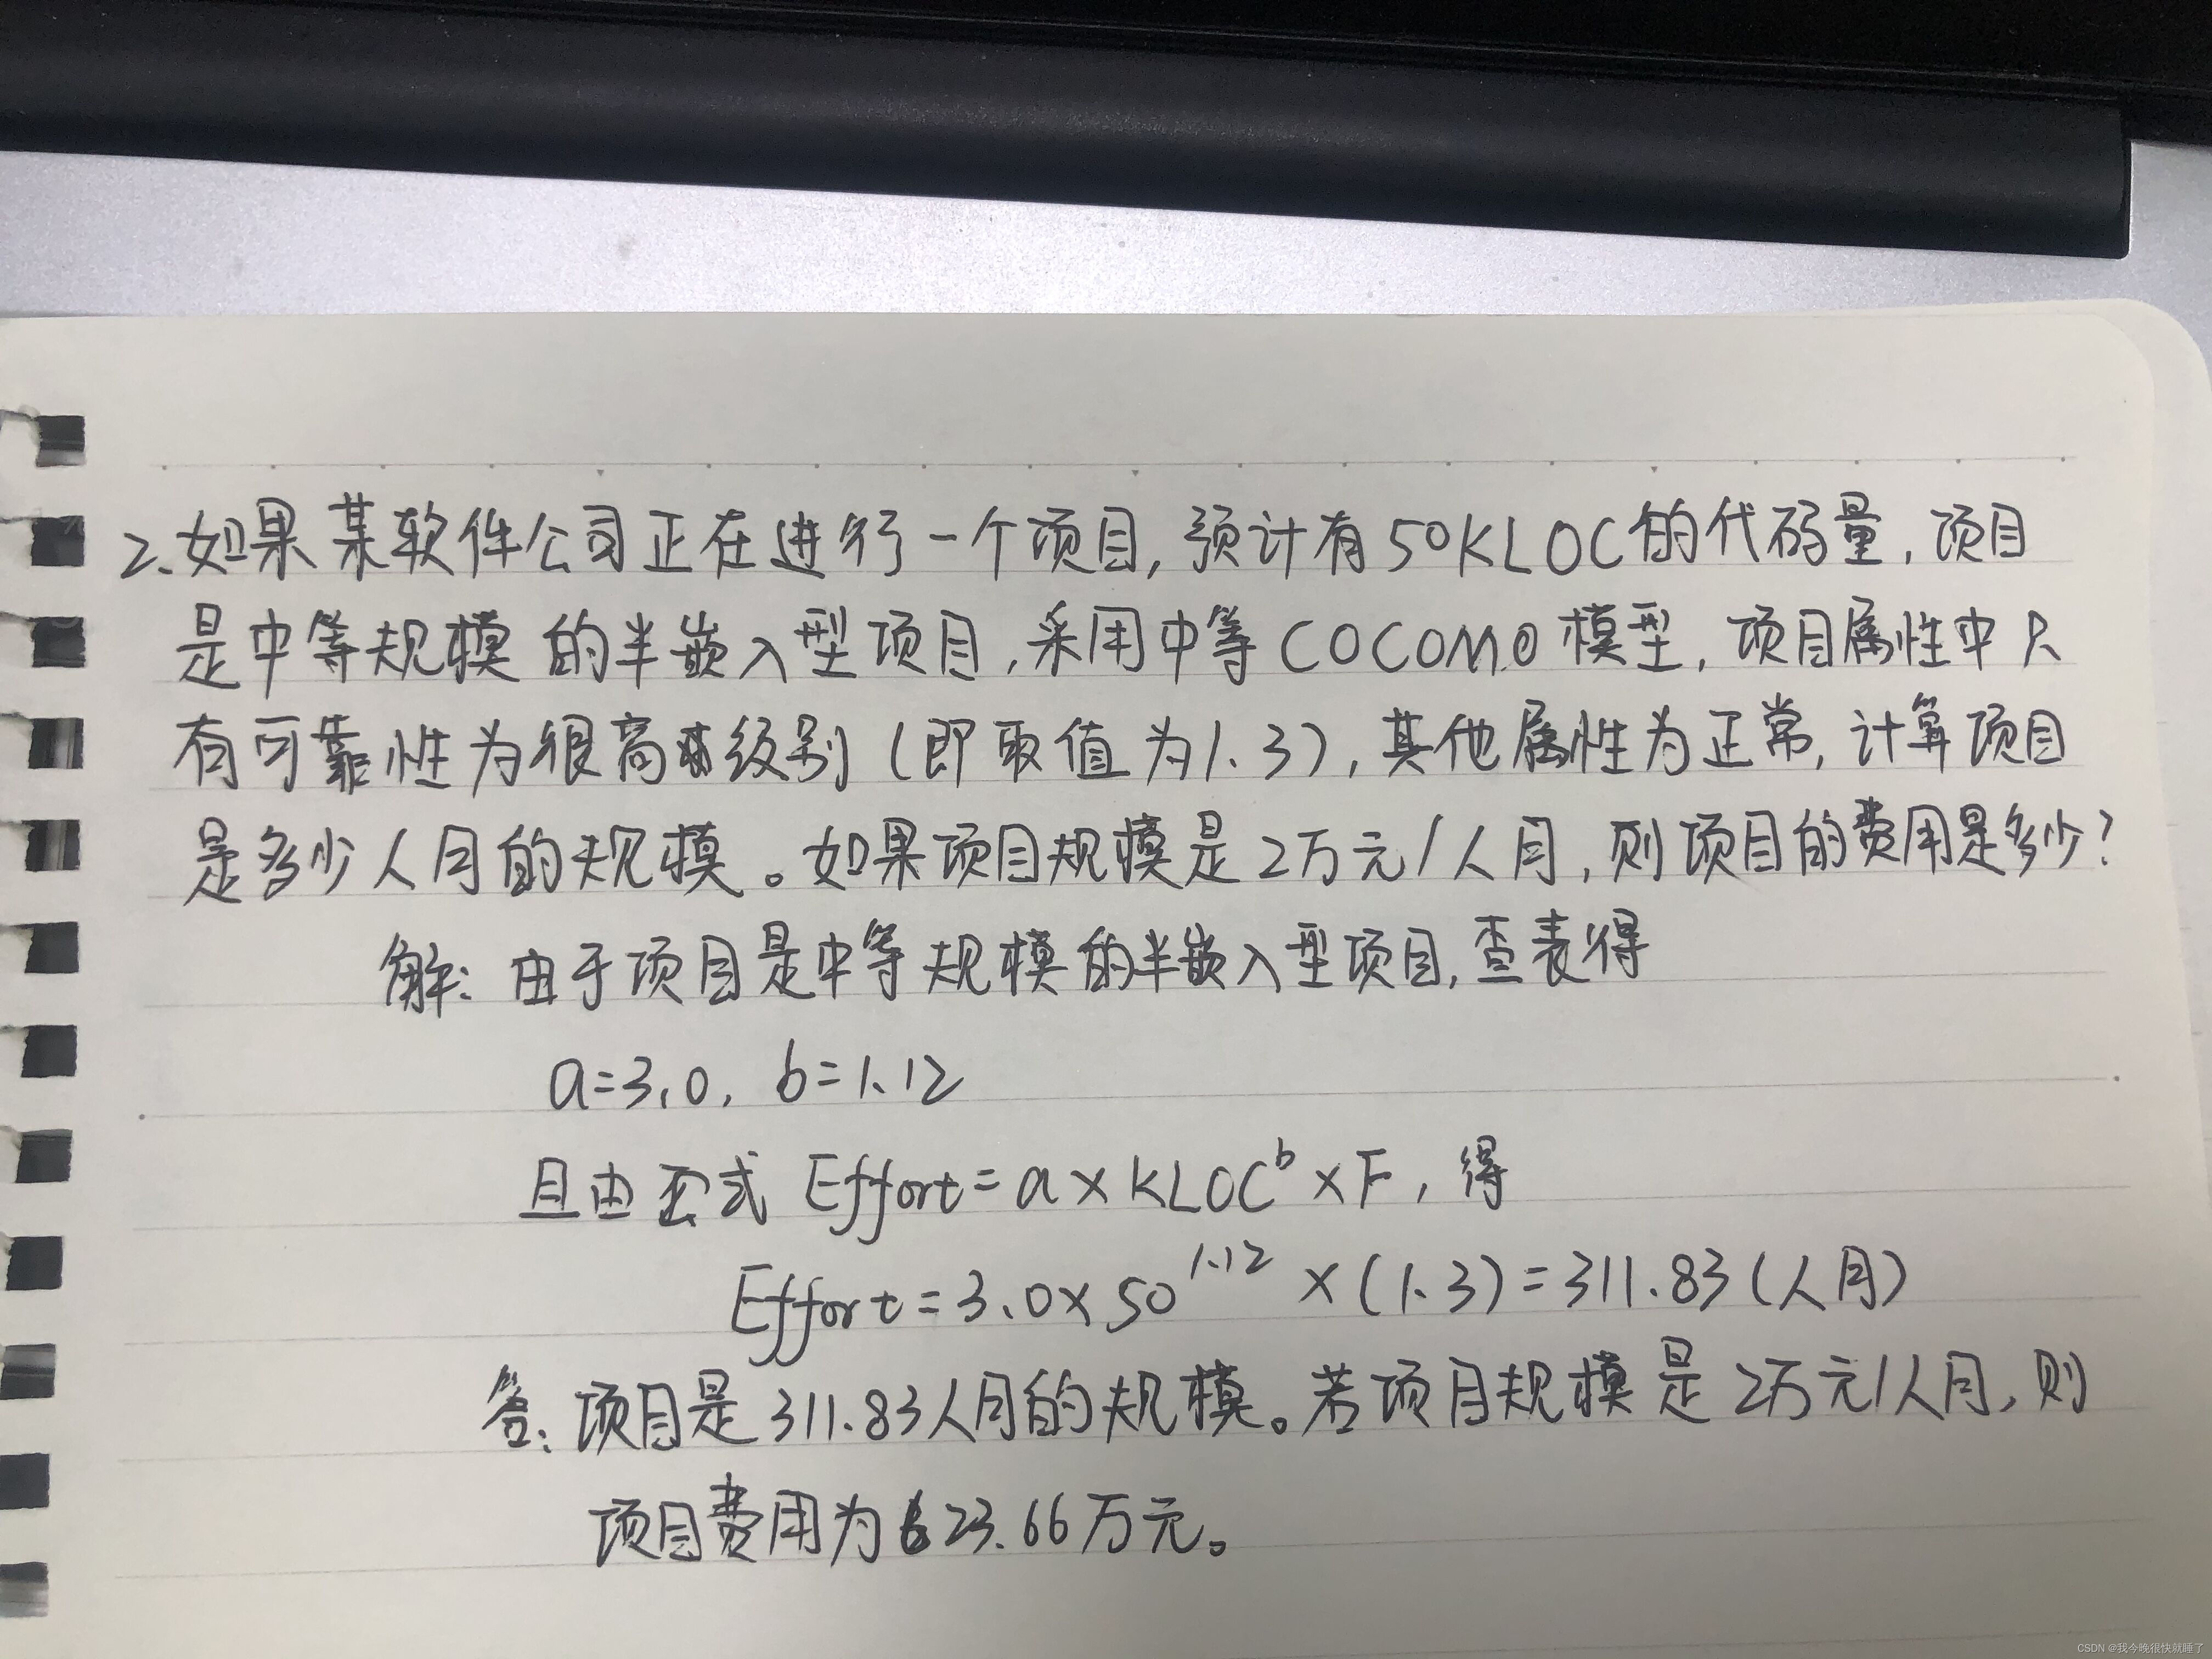 2.如果某软件公司正在进行一个项目,预计有50KLOC的代码量,项目
是中等规模的半嵌入型项目,采用中等COCOMO模型,项目属性中只
有可靠性为很高级别(即取值为1.3),其他属性为正常,计算项目
是多少人月的规模。如果项目规模是2万元/人月,则项目的费用是多少?
解:由于项目是中等规模的半嵌入型项目,查表得
a=3.0, b=1.12
且由公式 Effort=a×KLOC^b×F,得
Effort=3.0×50^1.12×(1.3)=311.83(人月)
答:项目是311.83人月的规模。若项目规模是2万元/人月,则
项目费用为623.66万元。
CSDN @我今晚很快就睡了